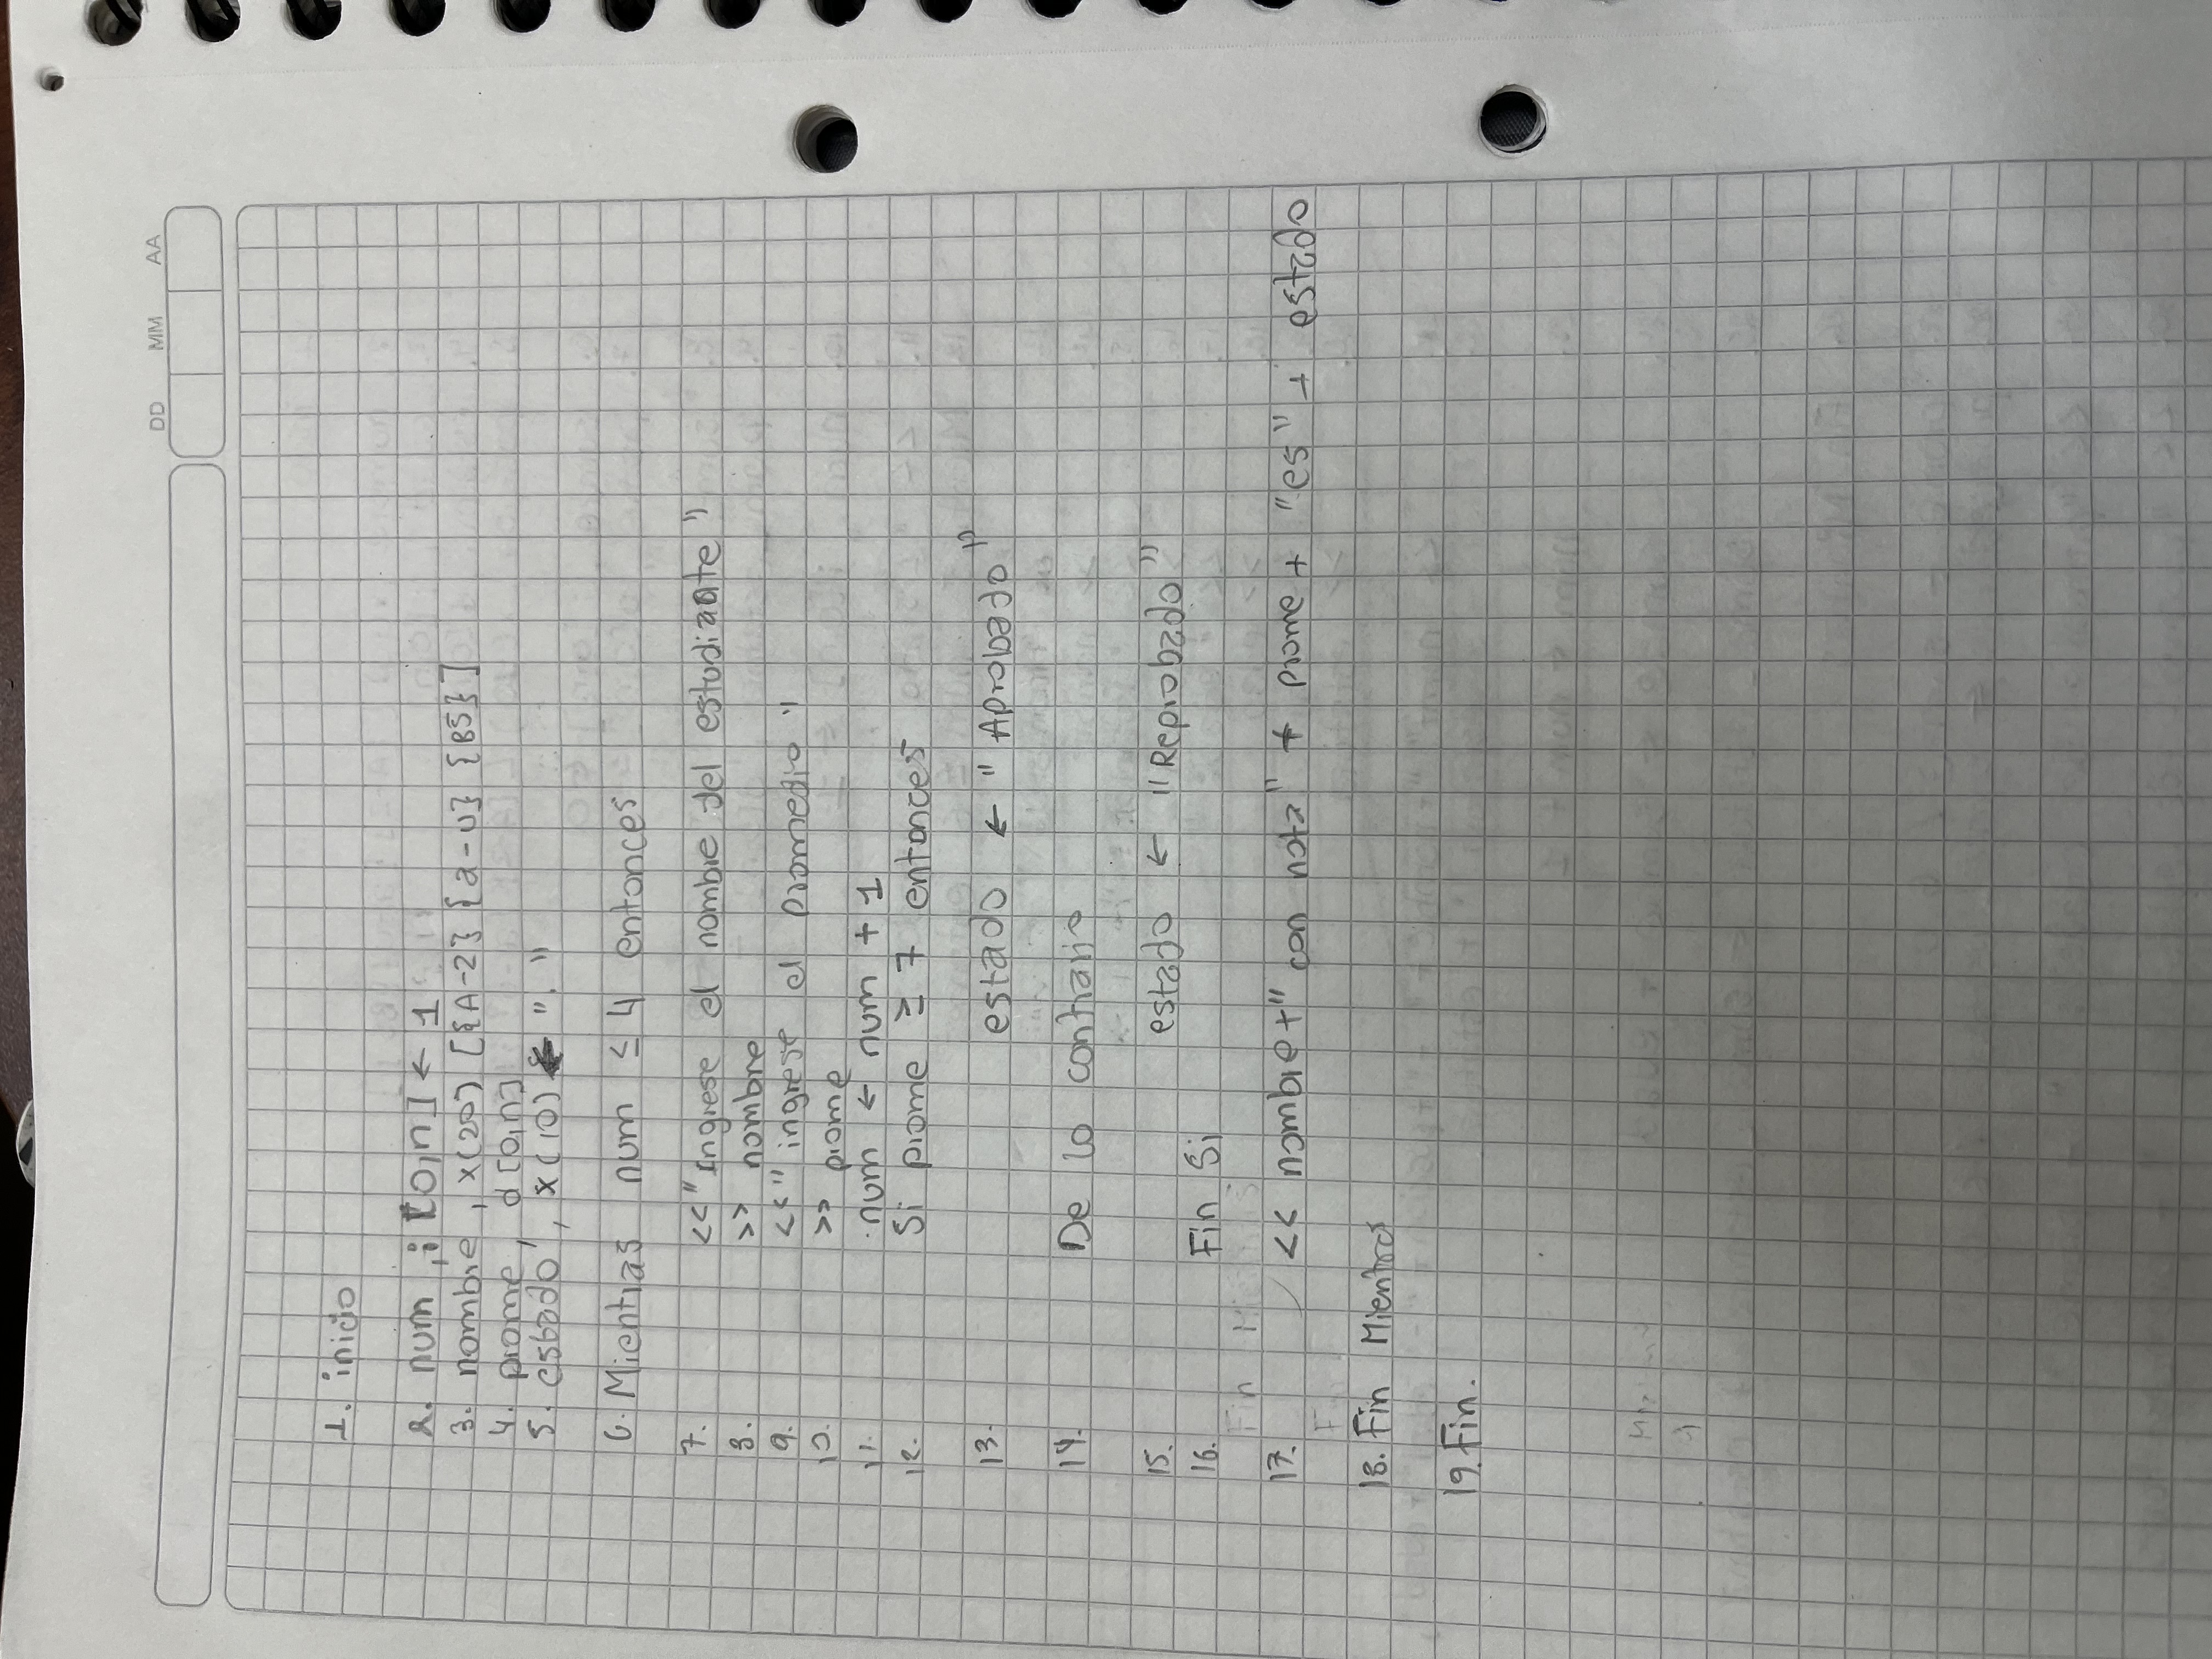 DD MM AA
1. inicio
2. num , i [0,n] ← 1
3. nombre , x(20) [{A-Z} {a-u} {BS}]
4. prome, d [0,n]
5. estado , x(10) ← " . "
6. Mientras num ≤ 4 entonces
7. << "Ingrese el nombre del estudiante"
8. >> nombre
9. << "ingrese el promedio"
10. >> prome
11. num ← num + 1
12. Si prome ≥ 7 entonces
13. estado ← "Aprobado"
14. De lo contrario
15. estado ← "Reprobado"
16. Fin Si
17. << nombre+" con nota" + prome + "es" + estado
18. Fin Mientras
19. Fin.